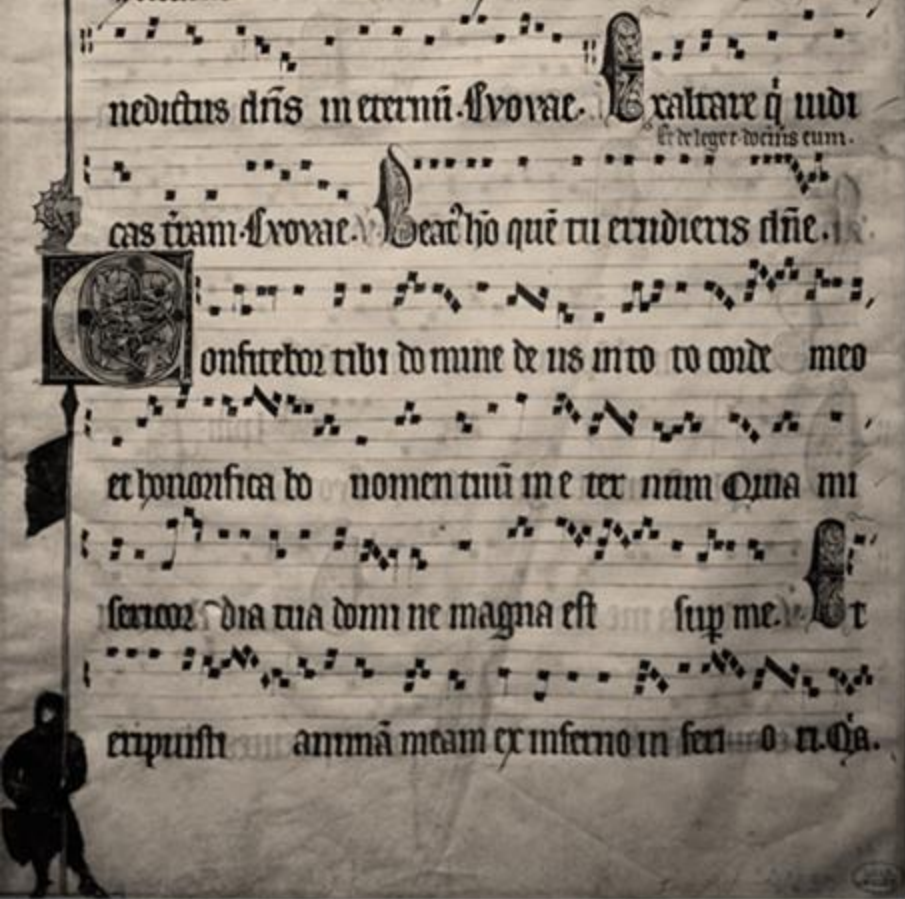 nedictus dn̄s in eternū. Evovae. Exaltare q̇ iudi
Et de lege t. docūis eum.
cas t̄ram. Evovae. Beat᷒ hō quē tu erudieris dn̄e.
Confitebor tibi do mine de us in to to corde meo
et honorifica bo nomen tuū in e ter num Quia mi
sericor dia tua domi ne magna est sup̱ me. Et
eripuisti animā meam ex inferno in feri o ri. Qa̓.